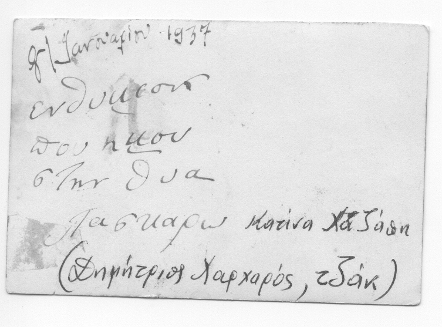 8/Ιανουαρίου 1937
ενθυμιον
που ημου
στην θυα
Πασκαρω Κατίνα Χατζάπη
(Δημήτριος Χαρχαρός, τζάκ)